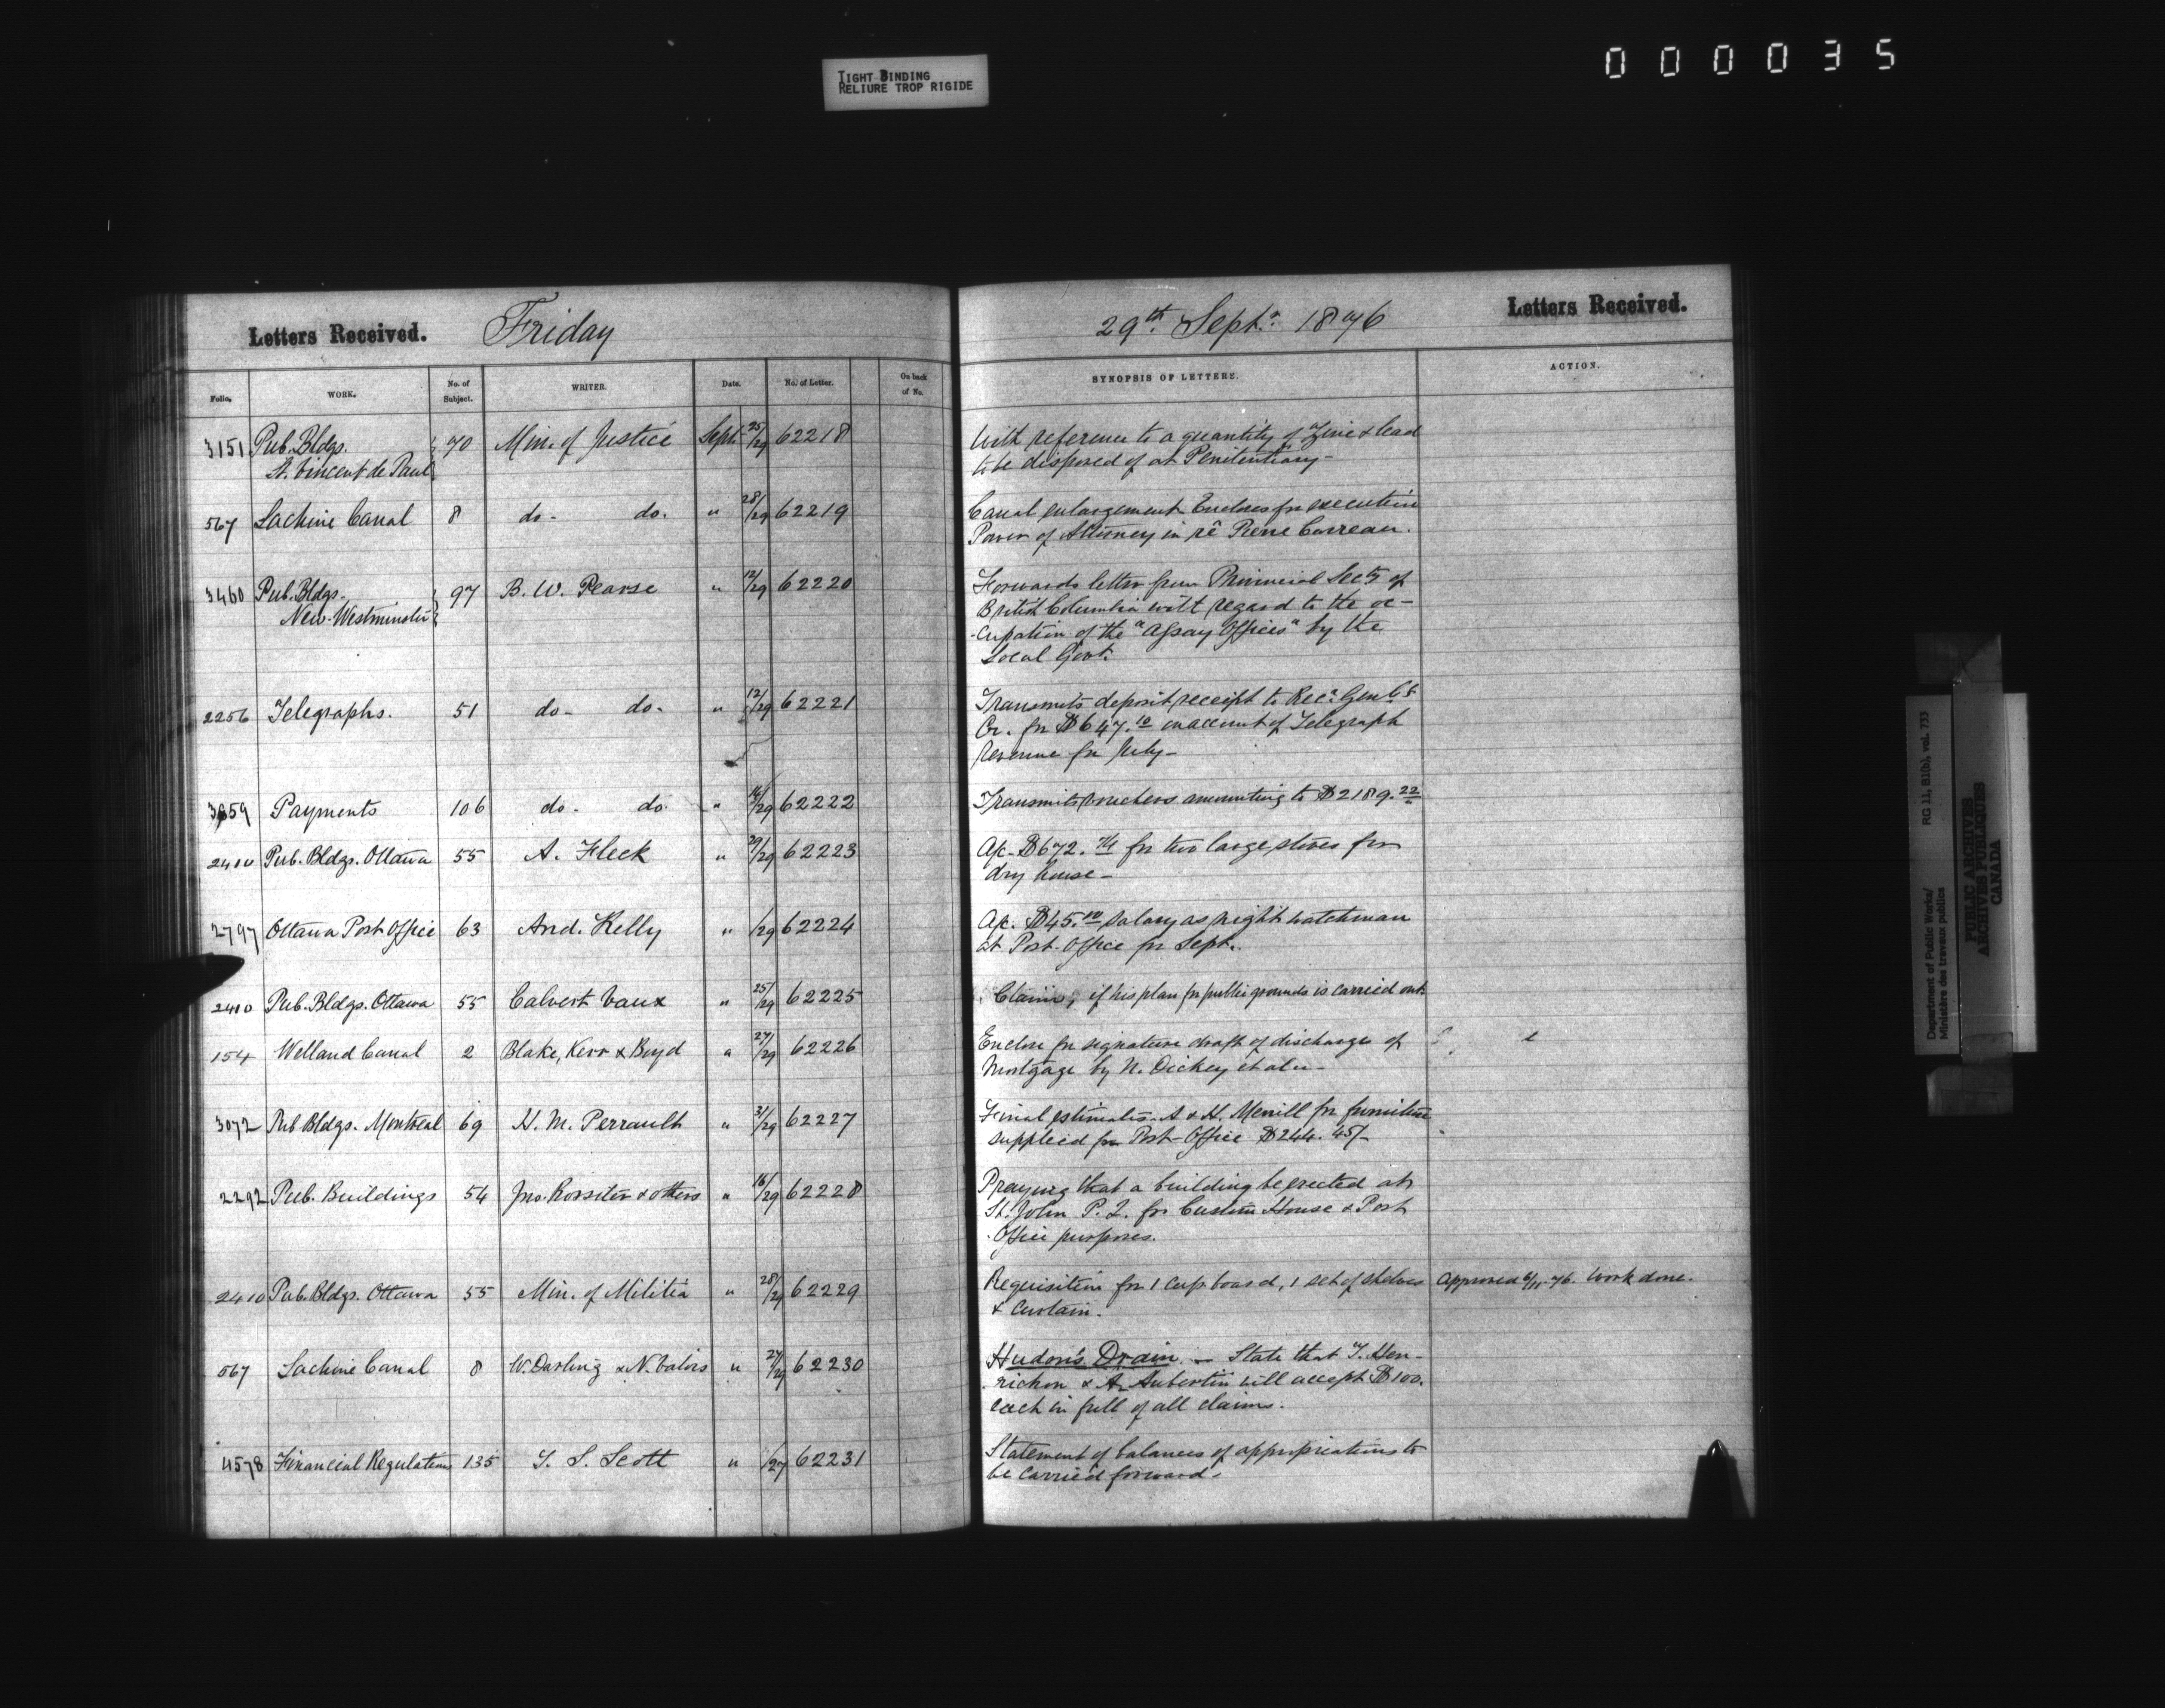 TIGHT BINDING
RELIURE TROP RIGIDE
000035
Letters Received. Friday
29th Septr. 1876 Letters Received.
Folio. WORK. No. of Subject. WRITER. Date. No. of Letter. On back of No. SYNOPSIS OF LETTERS. ACTION.
3151 Pub. Bldgs. 70 Min. of Justice Sept. 25/29 62218 With reference to a quantity of Zinc & lead
St. Vincent de Paul to be disposed of at Penitentiary -
567 Lachine Canal 8 do - do. " 28/29 62219 Canal enlargement Encloses for execution
Power of Attorney in rê Pierre Carreau.
3460 Pub. Bldgs. 97 B. W. Pearse " 12/29 62220 Forwards letter from Provincial Secty of
New-Westminster British Columbia with regard to the oc-
-cupation of the "Assay Offices" by the
Local Govt.
2256 Telegraphs. 51 do - do. " 12/29 62221 Transmits deposit receipt to Recr. Genls
Cr. for $647.10 on account of Telegraph
Revenue for July -
3659 Payments 106 do - do " 16/29 62222 Transmits vouchers amounting to $2189.22
2410 Pub. Bldgs. Ottawa 55 A. Fleck " 29/29 62223 A/c. $672. for two large stoves for
dry house -
2797 Ottawa Post Office 63 And. Kelly " /29 62224 A/c. $45.00 salary as night watchman
at Post-Office for Sept.
2410 Pub. Bldgs. Ottawa 55 Calvert Vaux " 25/29 62225 Claims, if his plan for public grounds is carried out
154 Welland Canal 2 Blake, Kerr & Boyd " 27/29 62226 Enclose for signature draft of discharge of
Mortgage by N. Dickey et al -
3072 Pub Bldgs. Montreal 69 H. M. Perrault " 31/29 62227 Final estimates A & H. Merrill for furniture
supplied for Post-Office $244.45/-
2292 Pub. Buildings 54 Jno. Rossiter & others " 16/29 62228 Praying that a building be erected at
St. John P. Q. for Custom House & Post
Office purposes.
2410 Pub. Bldgs. Ottawa 55 Min. of Militia " 28/29 62229 Requisition for 1 cup board, 1 set of shelves Approved 6/11-76. Work done.
& curtain.
567 Lachine Canal 8 W. Darling & N. Valois " 27/29 62230 Hudon's Drain. - State that T. Hen-
richon & A. Aubertin will accept $100.
each in full of all claims.
4578 Financial Regulations 135 T. S. Scott " /27 62231 Statement of balances of appropriations to
be carried forward.
Department of Public Works/
Ministère des travaux publics
RG 11, B1(b), vol. 733
PUBLIC ARCHIVES
ARCHIVES PUBLIQUES
CANADA